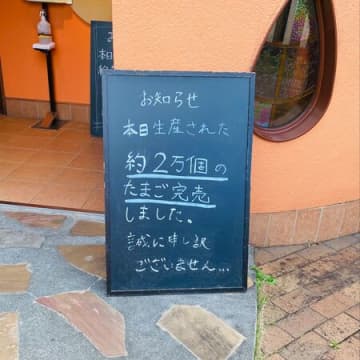 お知らせ
本日生産された
約2万個の
たまご完売
しました。
誠に申し訳
ございません...